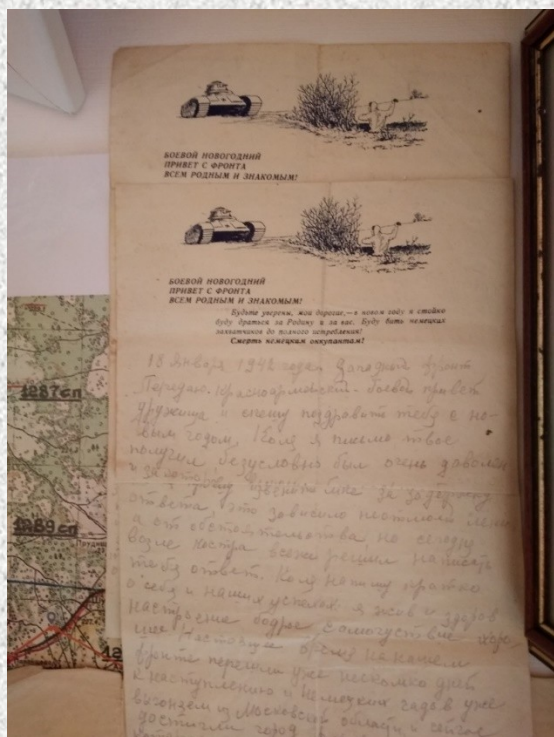 БОЕВОЙ НОВОГОДНИЙ
ПРИВЕТ С ФРОНТА
ВСЕМ РОДНЫМ И ЗНАКОМЫМ!
БОЕВОЙ НОВОГОДНИЙ
ПРИВЕТ С ФРОНТА
ВСЕМ РОДНЫМ И ЗНАКОМЫМ!
Будьте уверены, мои дорогие,—в новом году я стойко
буду драться за Родину и за вас. Буду бить немецких
захватчиков до полного истребления!
Смерть немецким оккупантам!
13 Января 1942 года Западный фронт
Передаю красноармейский боевой привет
дружище и спешу поздравить тебя с но-
вым годом, Коля я письмо твое
получил безусловно был очень доволен
и за это
за задержку
ответа это зависило не от моей лени
а от обстоятельства но сегодня
возле костра решил написать
тебе ответ. Коля напишу кратко
о себе и наших успехах я жив и здоров
настроение бодрое, самочувствие хоро-
шее Настоящее время на нашем
фронте перешли уже несколько дней
к наступлению и немецких гадов уже
выгоняем из Московской области и сейчас
достигли город
1287 сп
1289 сп
12